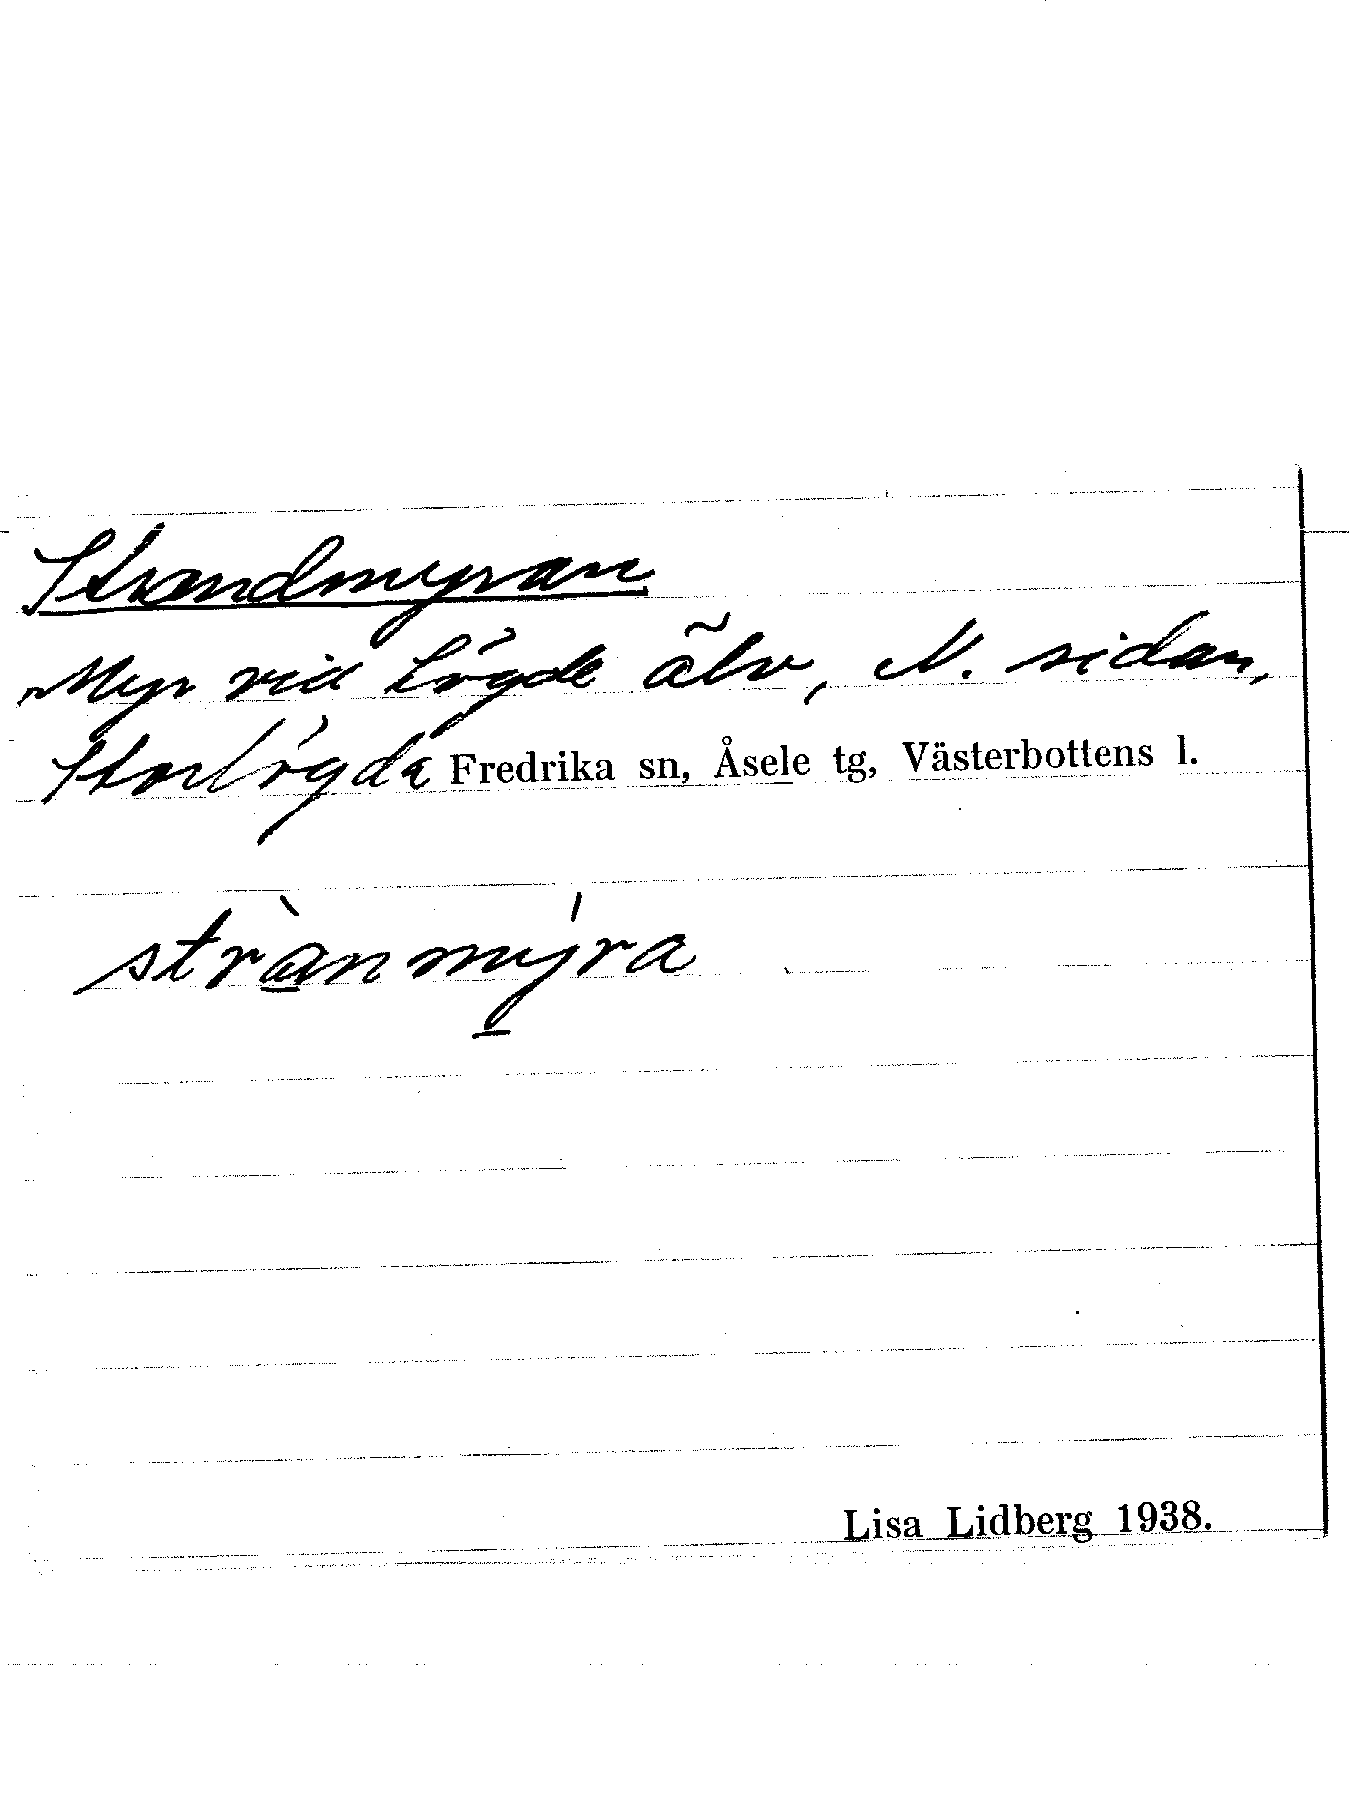 Strandmyran
Myr vid Lögde älv, N. sidan,
Storlögda Fredrika sn, Åsele tg, Västerbottens l.
strànmýra
Lisa Lidberg 1938.